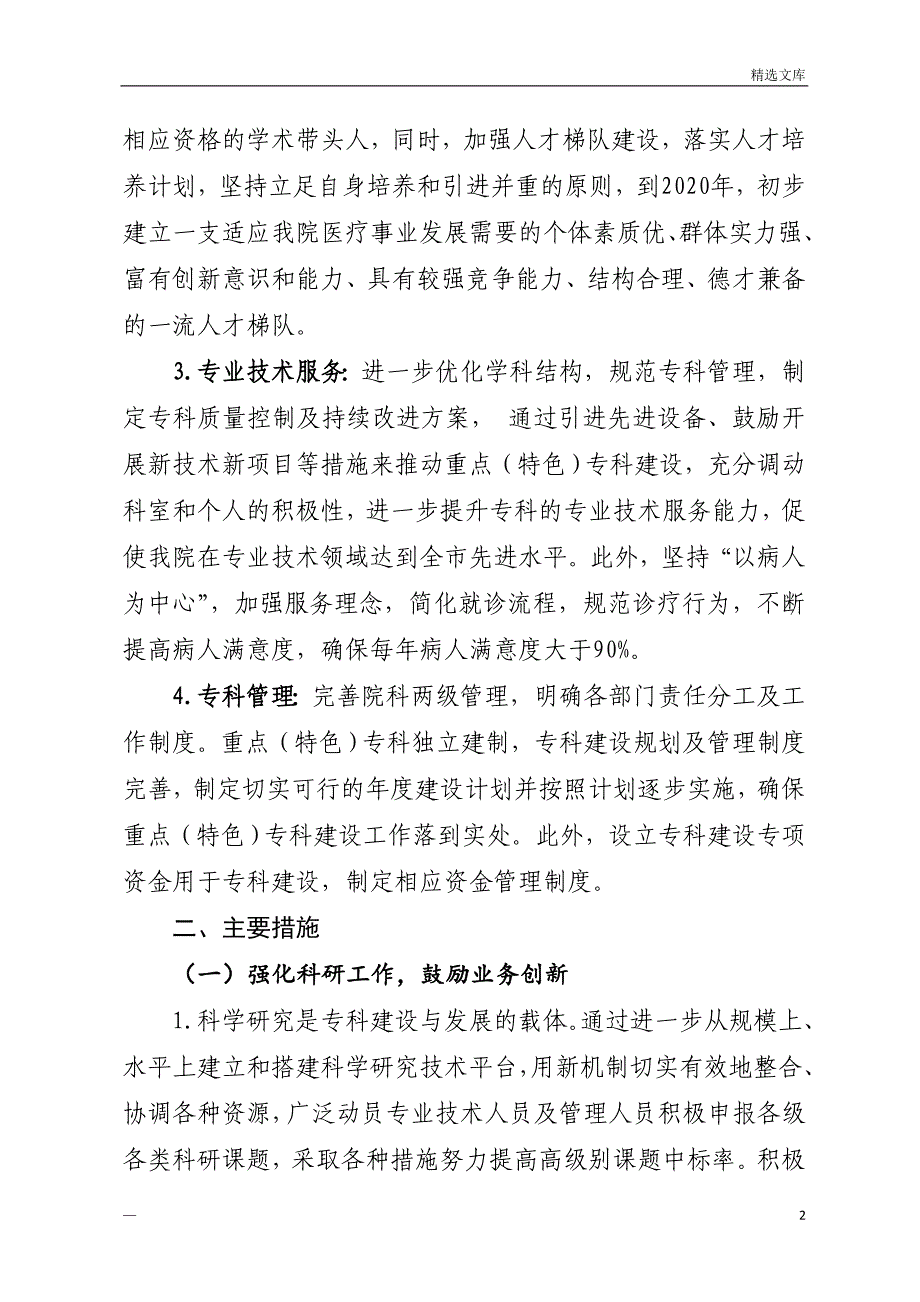 精选文库
相应资格的学术带头人，同时，加强人才梯队建设，落实人才培
养计划，坚持立足自身培养和引进并重的原则，到2020年，初步
建立一支适应我院医疗事业发展需要的个体素质优、群体实力强、
富有创新意识和能力、具有较强竞争能力、结构合理、德才兼备
的一流人才梯队。
3.专业技术服务：进一步优化学科结构，规范专科管理，制
定专科质量控制及持续改进方案， 通过引进先进设备、鼓励开
展新技术新项目等措施来推动重点（特色）专科建设，充分调动
科室和个人的积极性，进一步提升专科的专业技术服务能力，促
使我院在专业技术领域达到全市先进水平。此外，坚持“以病人
为中心”，加强服务理念，简化就诊流程，规范诊疗行为，不断
提高病人满意度，确保每年病人满意度大于90%。
4.专科管理：完善院科两级管理，明确各部门责任分工及工
作制度。重点（特色）专科独立建制，专科建设规划及管理制度
完善，制定切实可行的年度建设计划并按照计划逐步实施，确保
重点（特色）专科建设工作落到实处。此外，设立专科建设专项
资金用于专科建设，制定相应资金管理制度。
二、主要措施
（一）强化科研工作，鼓励业务创新
1.科学研究是专科建设与发展的载体。通过进一步从规模上、
水平上建立和搭建科学研究技术平台，用新机制切实有效地整合、
协调各种资源，广泛动员专业技术人员及管理人员积极申报各级
各类科研课题，采取各种措施努力提高高级别课题中标率。积极
— 2